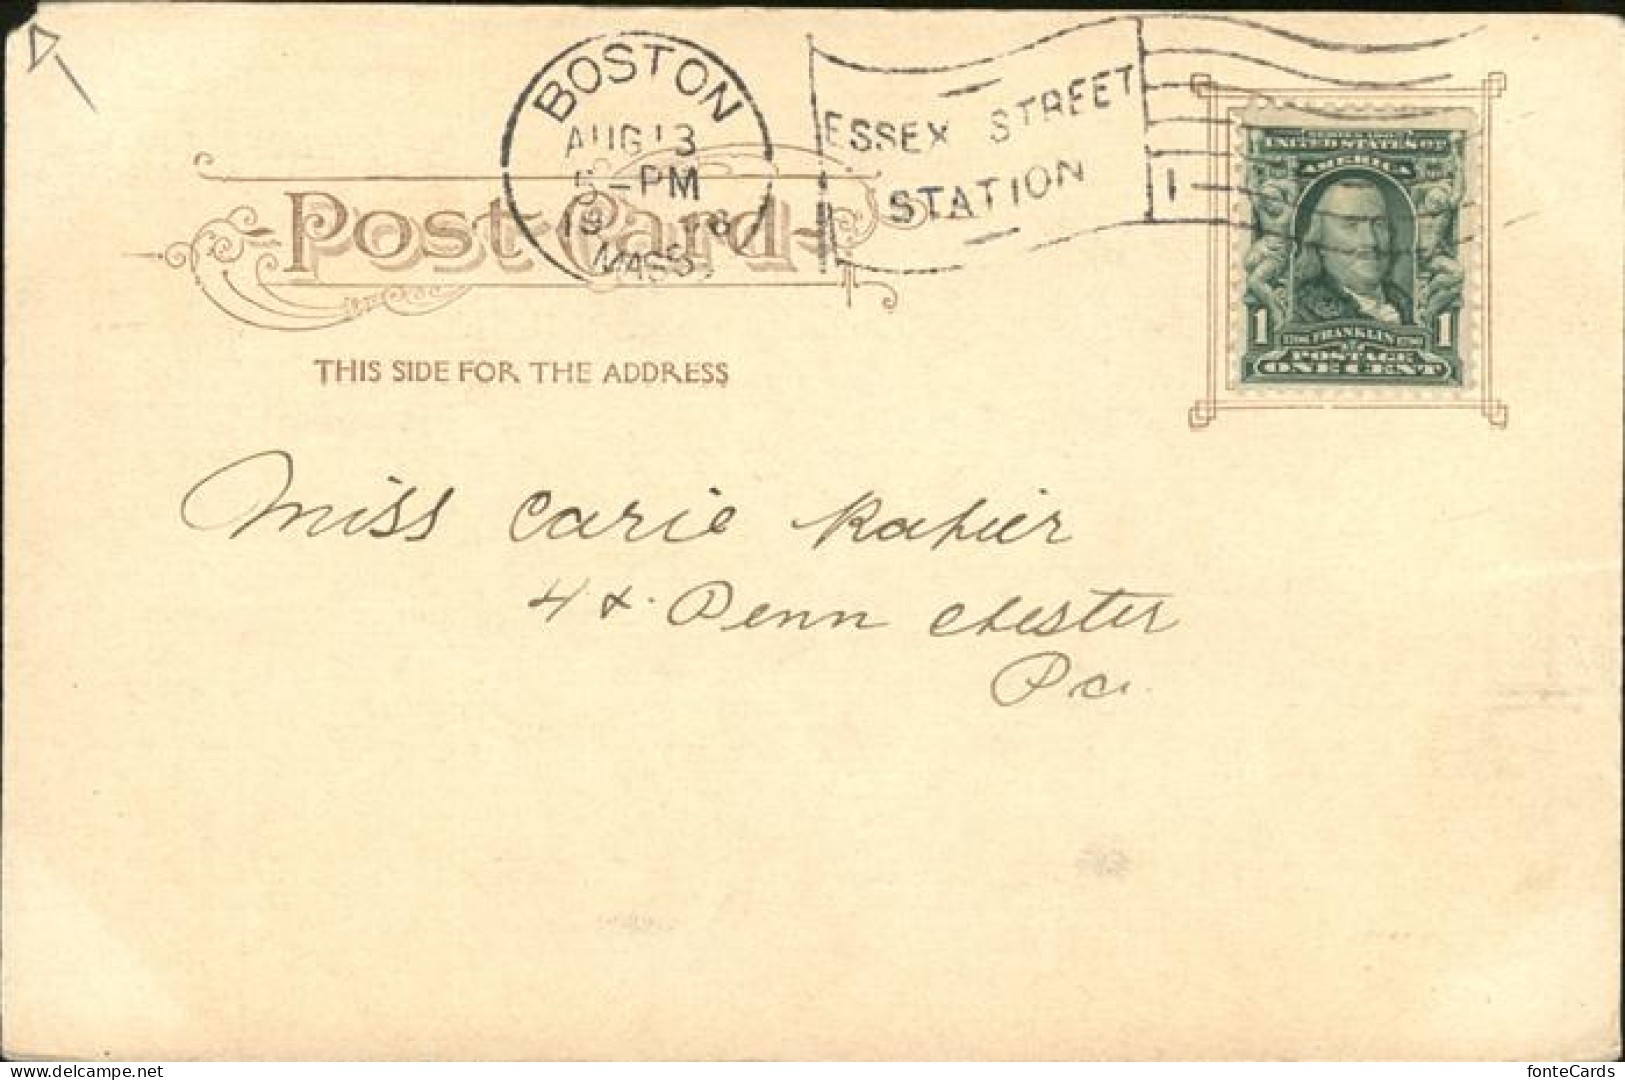 BOSTON
AUG 13
5-PM
MASS.
ESSEX STREET
STATION
1
Post Card
THIS SIDE FOR THE ADDRESS
SERIES 1902
UNITED STATES OF
AMERICA
1 FRANKLIN 1
POSTAGE
ONE CENT
Miss Carie Rapier
4 & Penn Chester
Pa.
delcampe.net
fonteCards